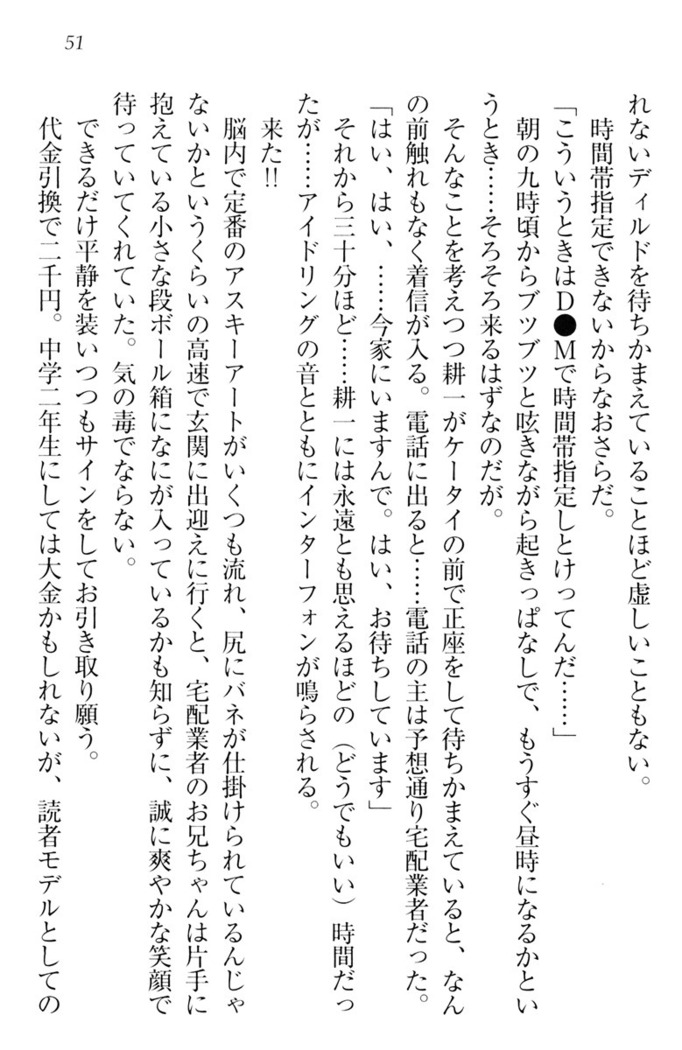 51
れないディルドを待ちかまえていることほど虚しいこともない。
時間帯指定できないからなおさらだ。
「こういうときはD●Mで時間帯指定しとけってんだ……」
朝の九時頃からブツブツと呟きながら起きっぱなしで、もうすぐ昼時になるかとい
うとき……そろそろ来るはずなのだが。
そんなことを考えつつ耕一がケータイの前で正座をして待ちかまえていると、なん
の前触れもなく着信が入る。電話に出ると……電話の主は予想通り宅配業者だった。
「はい、はい、……今家にいますんで。はい、お待ちしています」
それから三十分ほど……耕一には永遠とも思えるほどの（どうでもいい）時間だっ
たが……アイドリングの音とともにインターフォンが鳴らされる。
来た!!
脳内で定番のアスキーアートがいくつも流れ、尻にバネが仕掛けられているんじゃ
ないかというくらいの高速で玄関に出迎えに行くと、宅配業者のお兄ちゃんは片手に
抱えている小さな段ボール箱になにが入っているかも知らずに、誠に爽やかな笑顔で
待っていてくれていた。気の毒でならない。
できるだけ平静を装いつつもサインをしてお引き取り願う。
代金引換で二千円。中学二年生にしては大金かもしれないが、読者モデルとしての